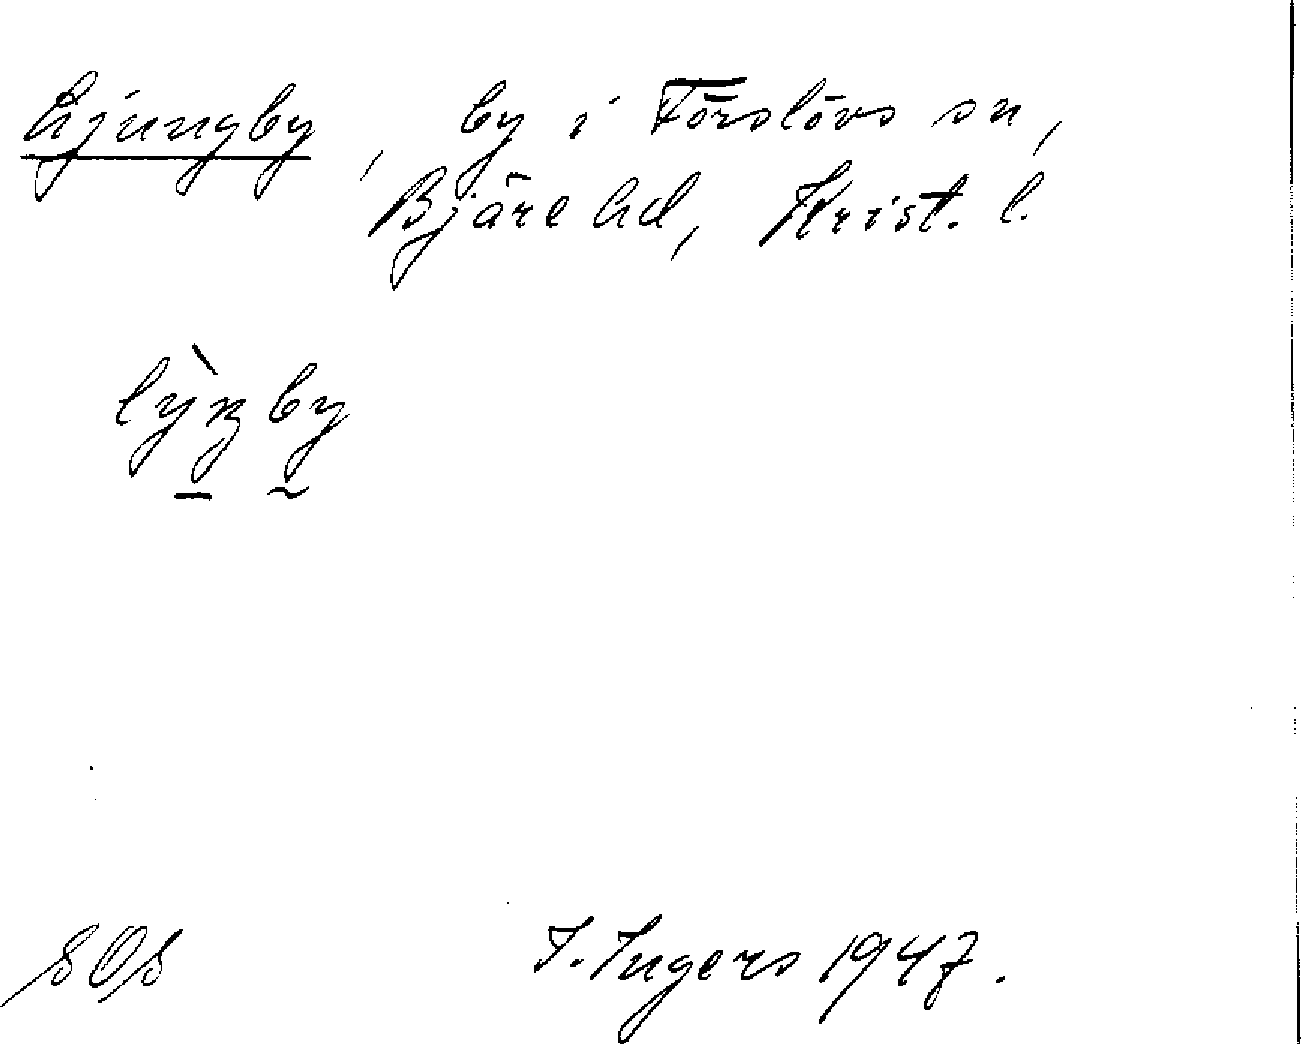 Ljungby, by i Förslövs sn,
Bjäre hd, Krist. l.
lỳŋby
SOS I. Ingers 1947.